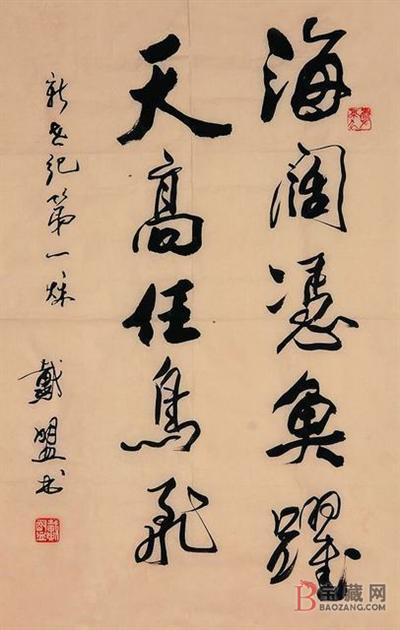 海阔憑魚躍
天高任鳥飛
新世纪第一秋
戴盟书
宝藏网
BAOZANG.COM